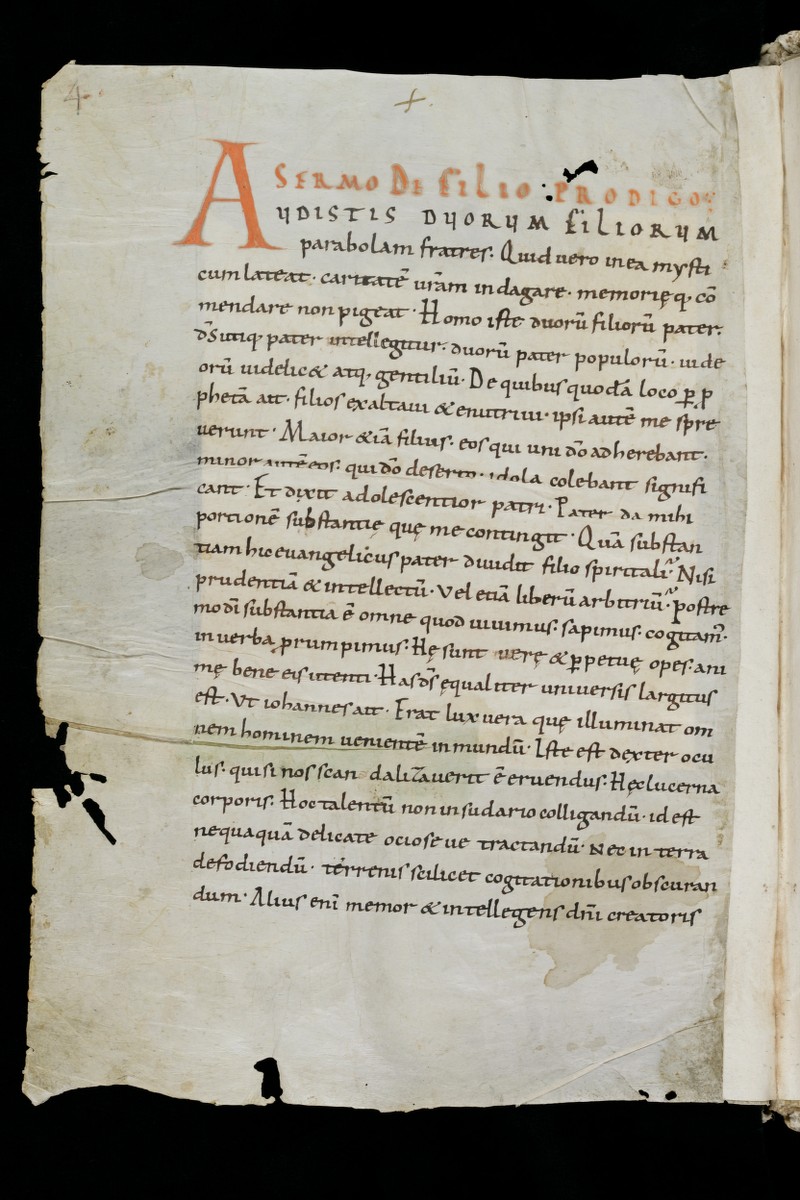 4
SERMO DE FILIO PRODIGO
AUDISTIS DUORUM FILIORUM
parabolam fratres. Quid vero in ea mysti
cum lateat. caritatē vr̄am indagare. memorięq; cō
mendare non pigeat. Homo iste duorū filiorū pater.
d̄s utiq; pater intellegitur. duorū pater populorū. iude
orū videlic& atq; gentiliū. De quibus quodā loco ꝑ ꝓ
phetā ait. filios exaltavi & enutrivi. ipsi autē me spre
verunt. Maior &iā filius. eos qui uni dō adherebant.
minor autē eos. qui dō deserto. idola colebant signifi
cant. Et dixit adolescentior patri. Pater da mihi
portionē substantię quę me contingit. Quā substan
tiam hic evangelicus pater dividit filio spiritali? Nisi
prudentiā & intellectū. Vel etiā liberū arbitriū? Postre
mo di substantia ē omne quod vivimus. sapimus. cogitam̄.
in verba prumpimus. Hę sunt verę & ꝑpetuę opes. ani
mę bene eis utenti. Has d̄s ęqualiter universis largitus
est. Ut iohannes ait. Erat lux vera quę illuminat om
nem hominem venientē in mundū. Iste est dexter ocu
lus. qui si nos scandalizaverit ē eruendus. Hęc lucerna
corporis. Hoc talentū non in sudario colligandū. id est
nequaquā delicate ociose ve tractandū. Nec in terra
defodiendū. terrenis scilicet cogitationibus obscuran
dum. Alius enī memor & intellegens dn̄i creatoris